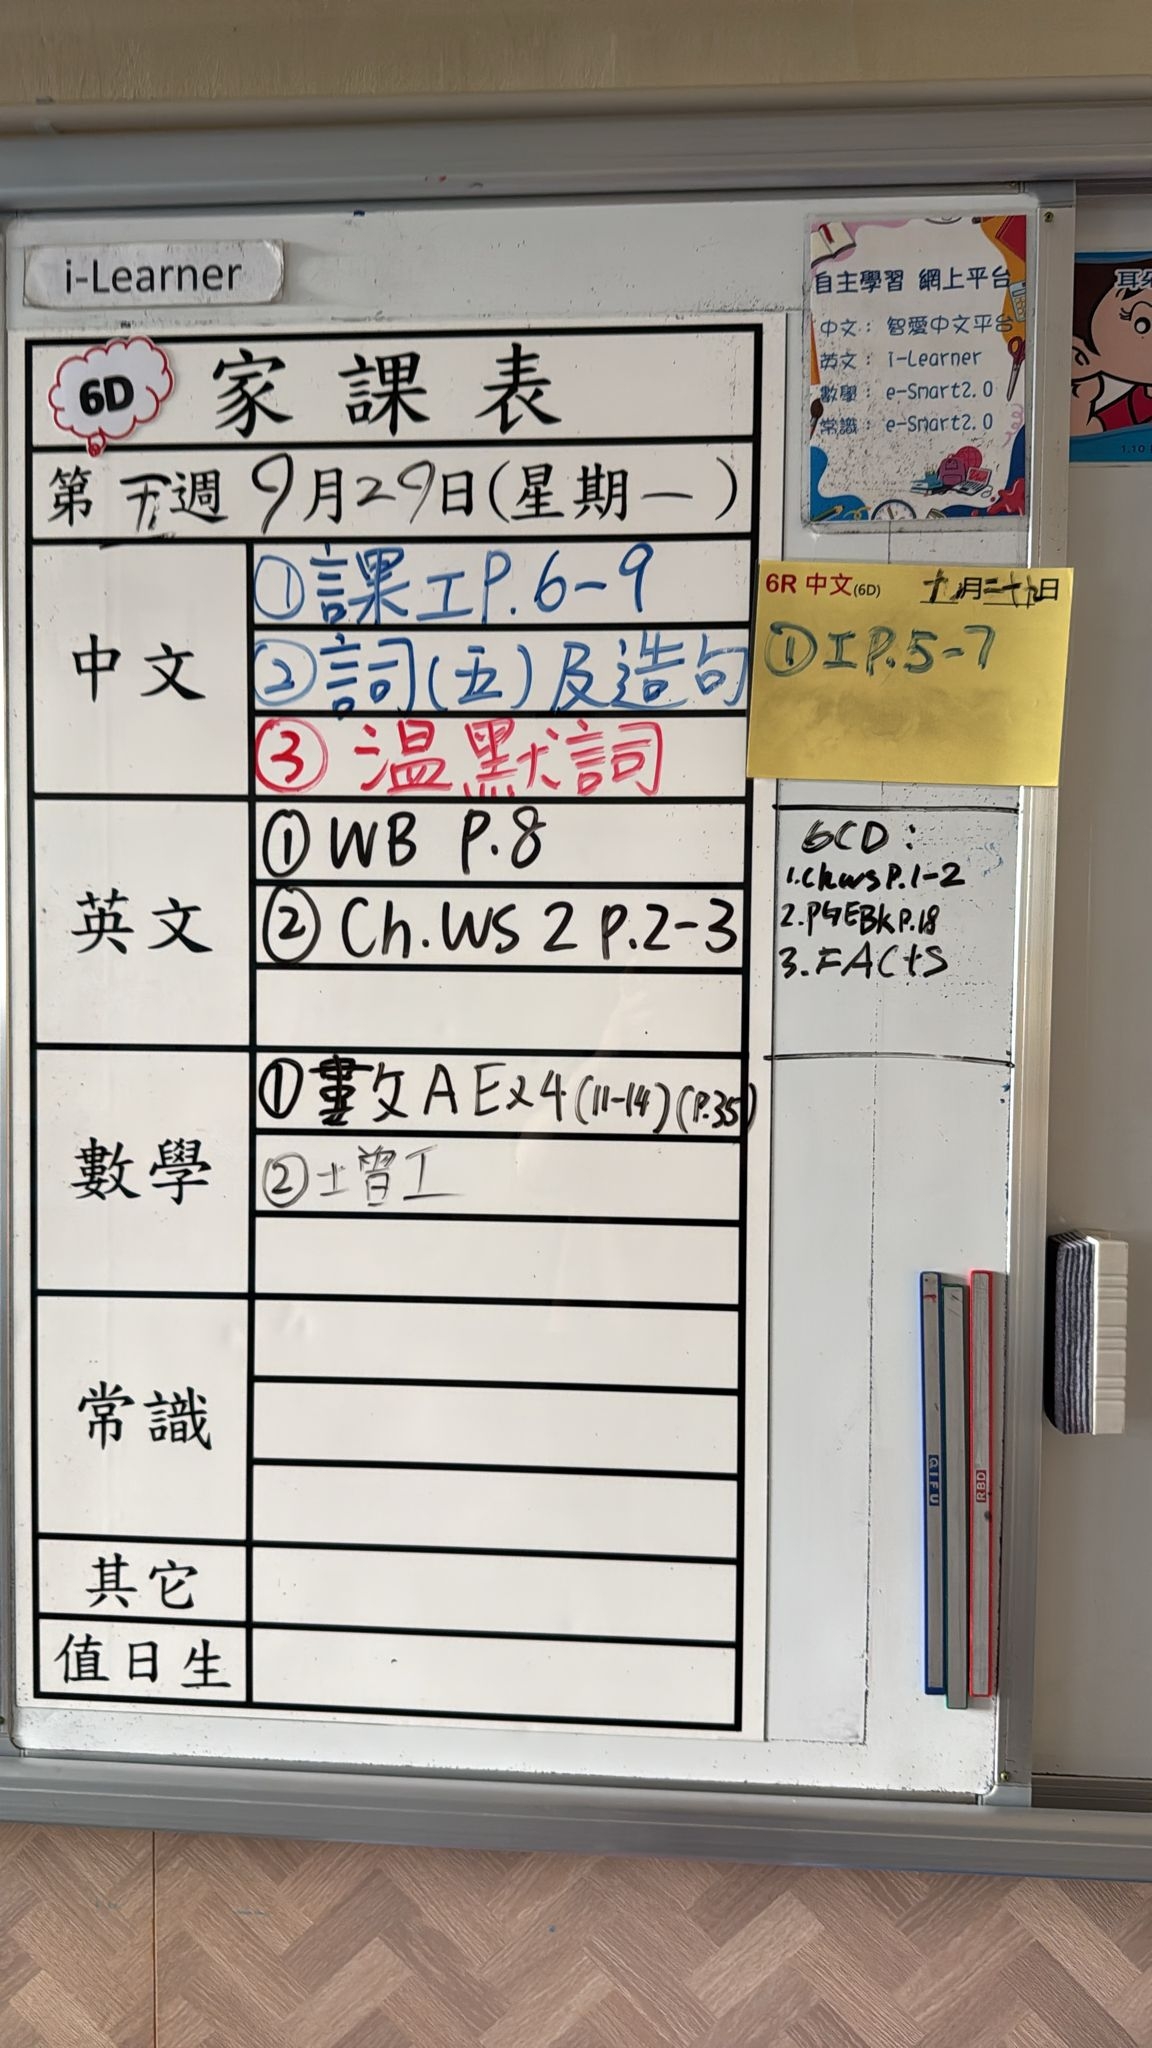 i-Learner
6D 家課表
第五週 9月29日(星期一)
中文
①課工P.6-9
②詞(五)及造句
③溫默詞
英文
①WB P.8
②Ch.WS 2 P.2-3
數學
① A Ex4(11-14)(P.35)
②
常識
其它
值日生
自主學習 網上平台
中文：智愛中文平台
英文：i-Learner
數學：e-Smart2.0
常識：e-Smart2.0
6R 中文(6D) 月二十九日
①工P.5-7
6CD:
1.ChwsP.1-2
2.P.18
3.FACTS
QIFU
RBD
1.10